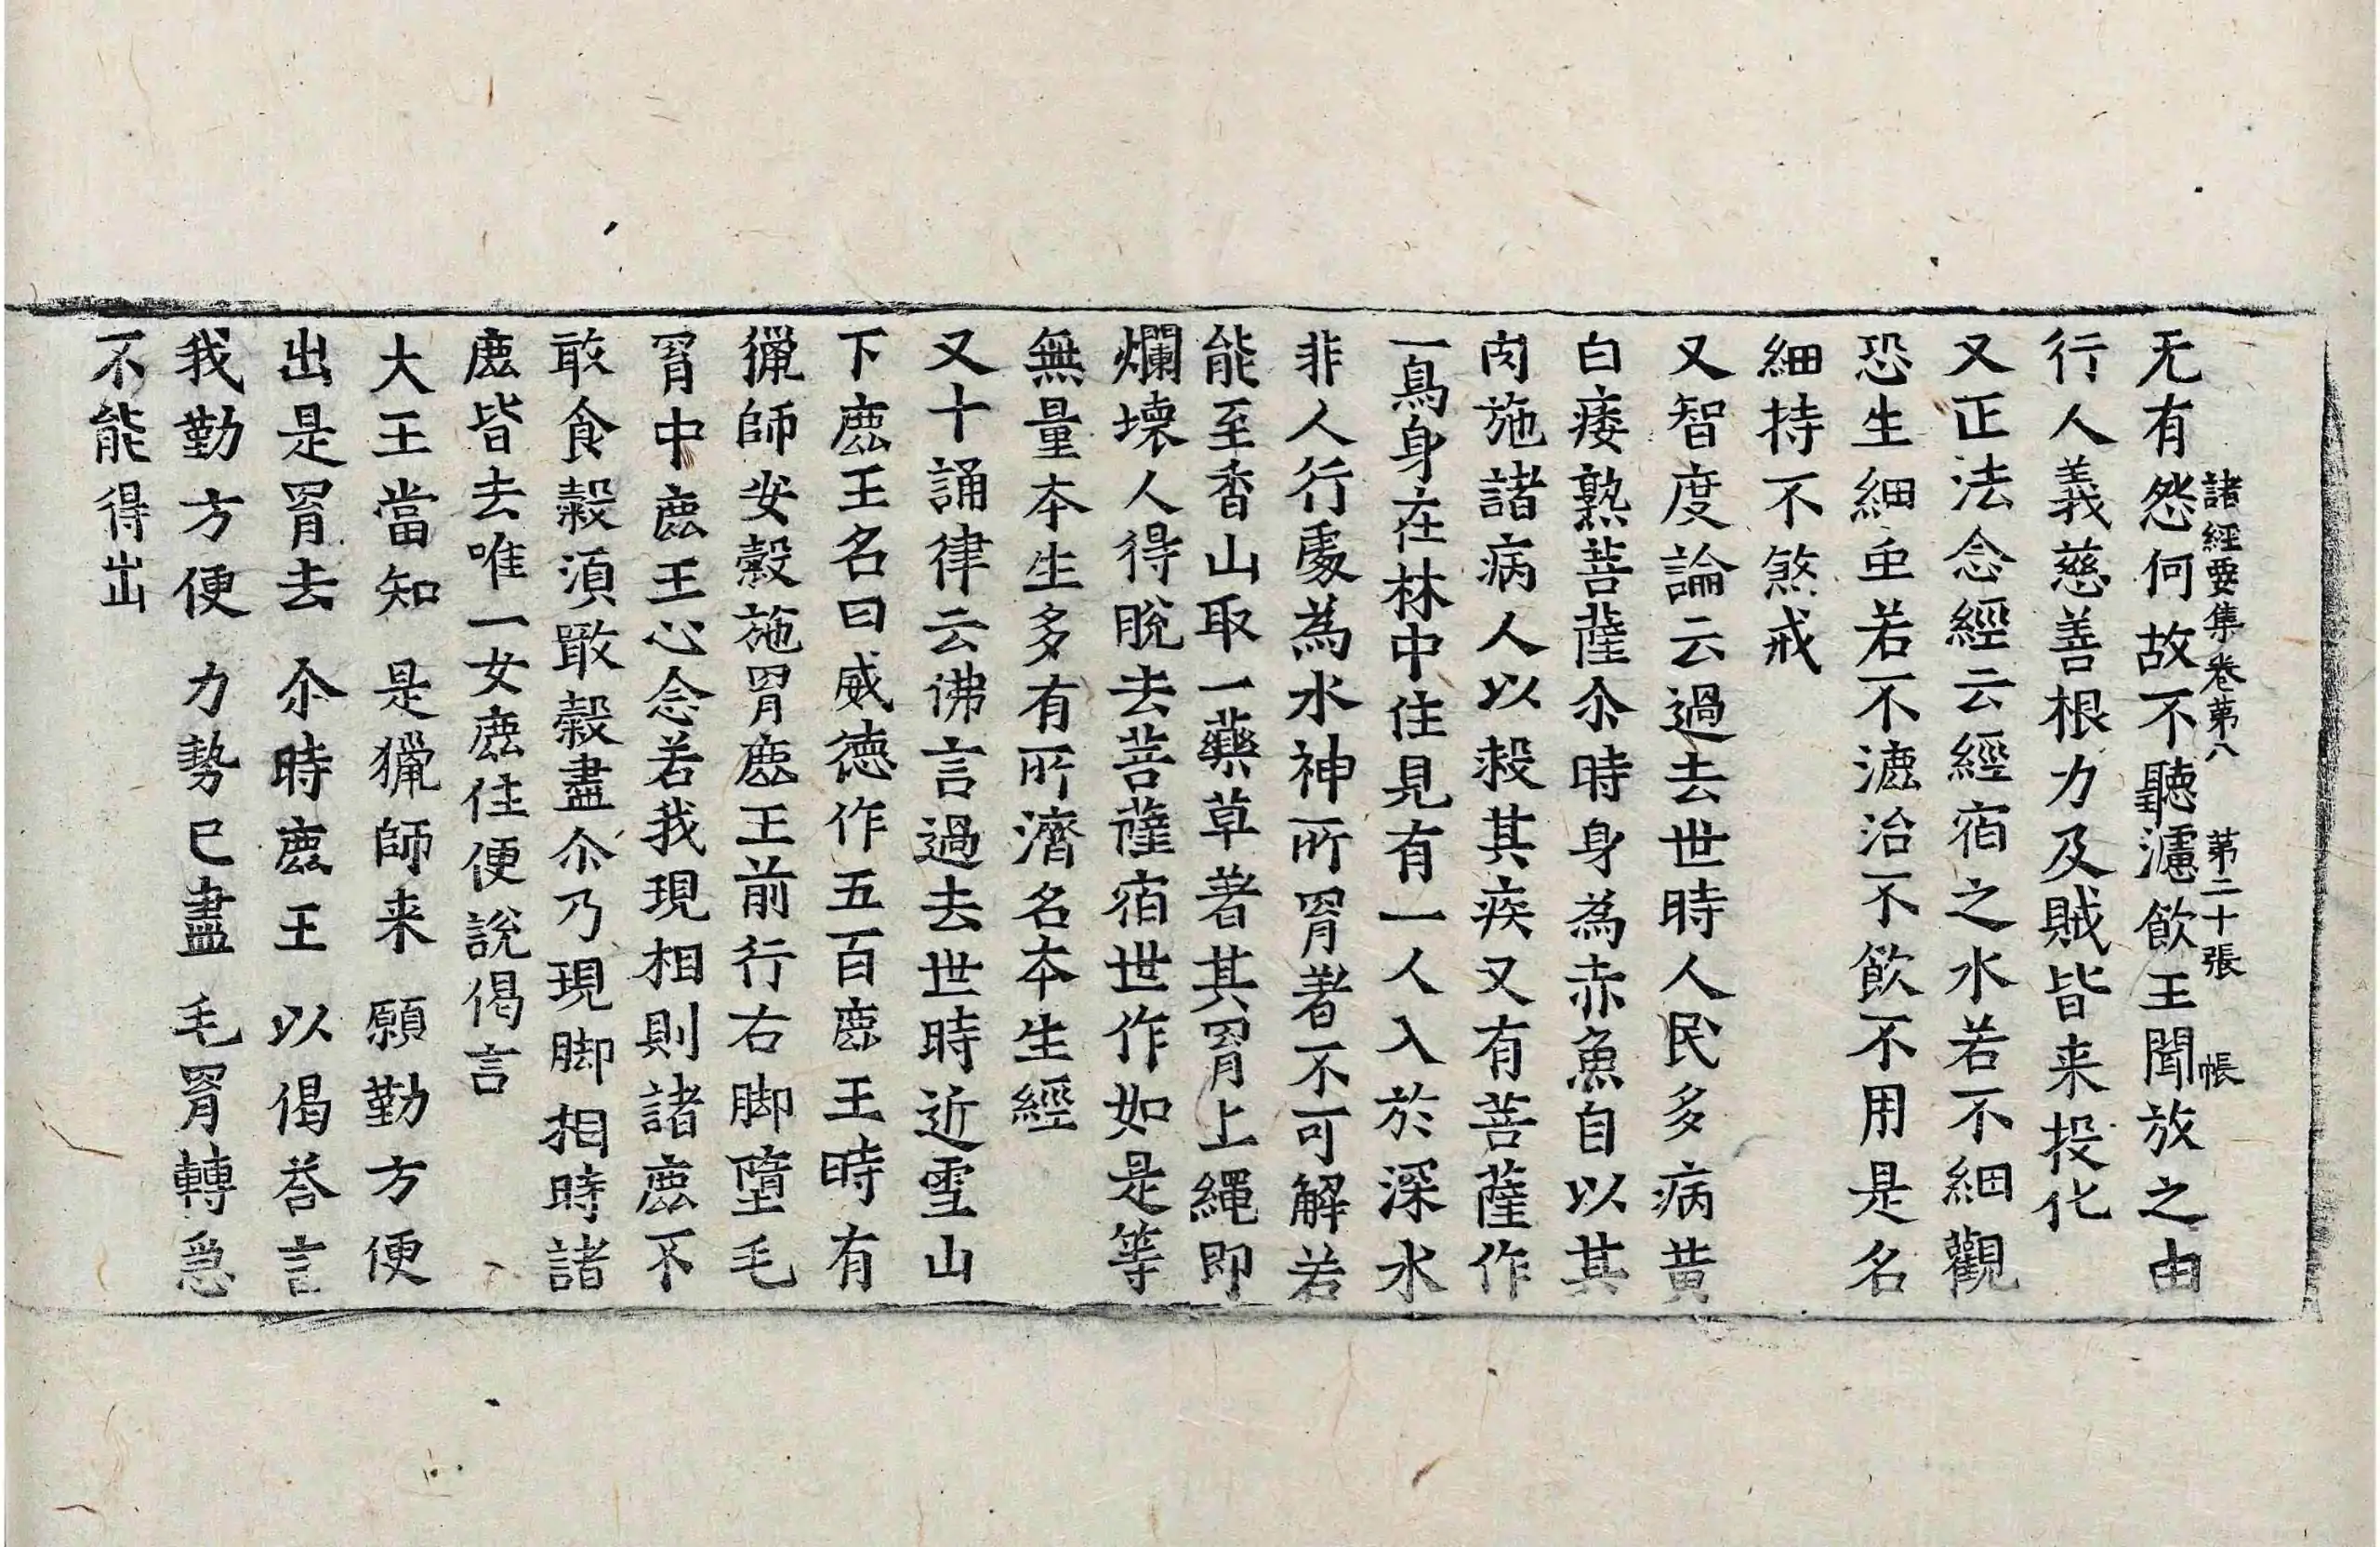 无有怨何故不聽濾飲王聞放之由
諸經要集卷第八 第二十張 帳
行人義慈善根力及賊皆来投化
又正法念經云經宿之水若不細觀
恐生細虫若不漉治不飲不用是名
細持不煞戒
又智度論云過去世時人民多病黄
白痿熟菩薩尒時身為赤魚自以其
肉施諸病人以救其疾又有菩薩作
一鳥身在林中住見有一人入於深水
非人行處為水神所罥著不可解若
能至香山取一藥草著其罥上繩即
爛壞人得脫去菩薩宿世作如是等
無量本生多有所濟名本生經
又十誦律云佛言過去世時近雪山
下鹿王名曰威德作五百鹿王時有
獵師安穀施罥鹿王前行右脚墮毛
罥中鹿王心念若我現相則諸鹿不
敢食穀須噉穀盡尒乃現脚相時諸
鹿皆去唯一女鹿住便說偈言
大王當知 是獵師来 願勤方便
出是罥去 尒時鹿王 以偈荅言
我勤方便 力勢已盡 毛罥轉急
不能得出